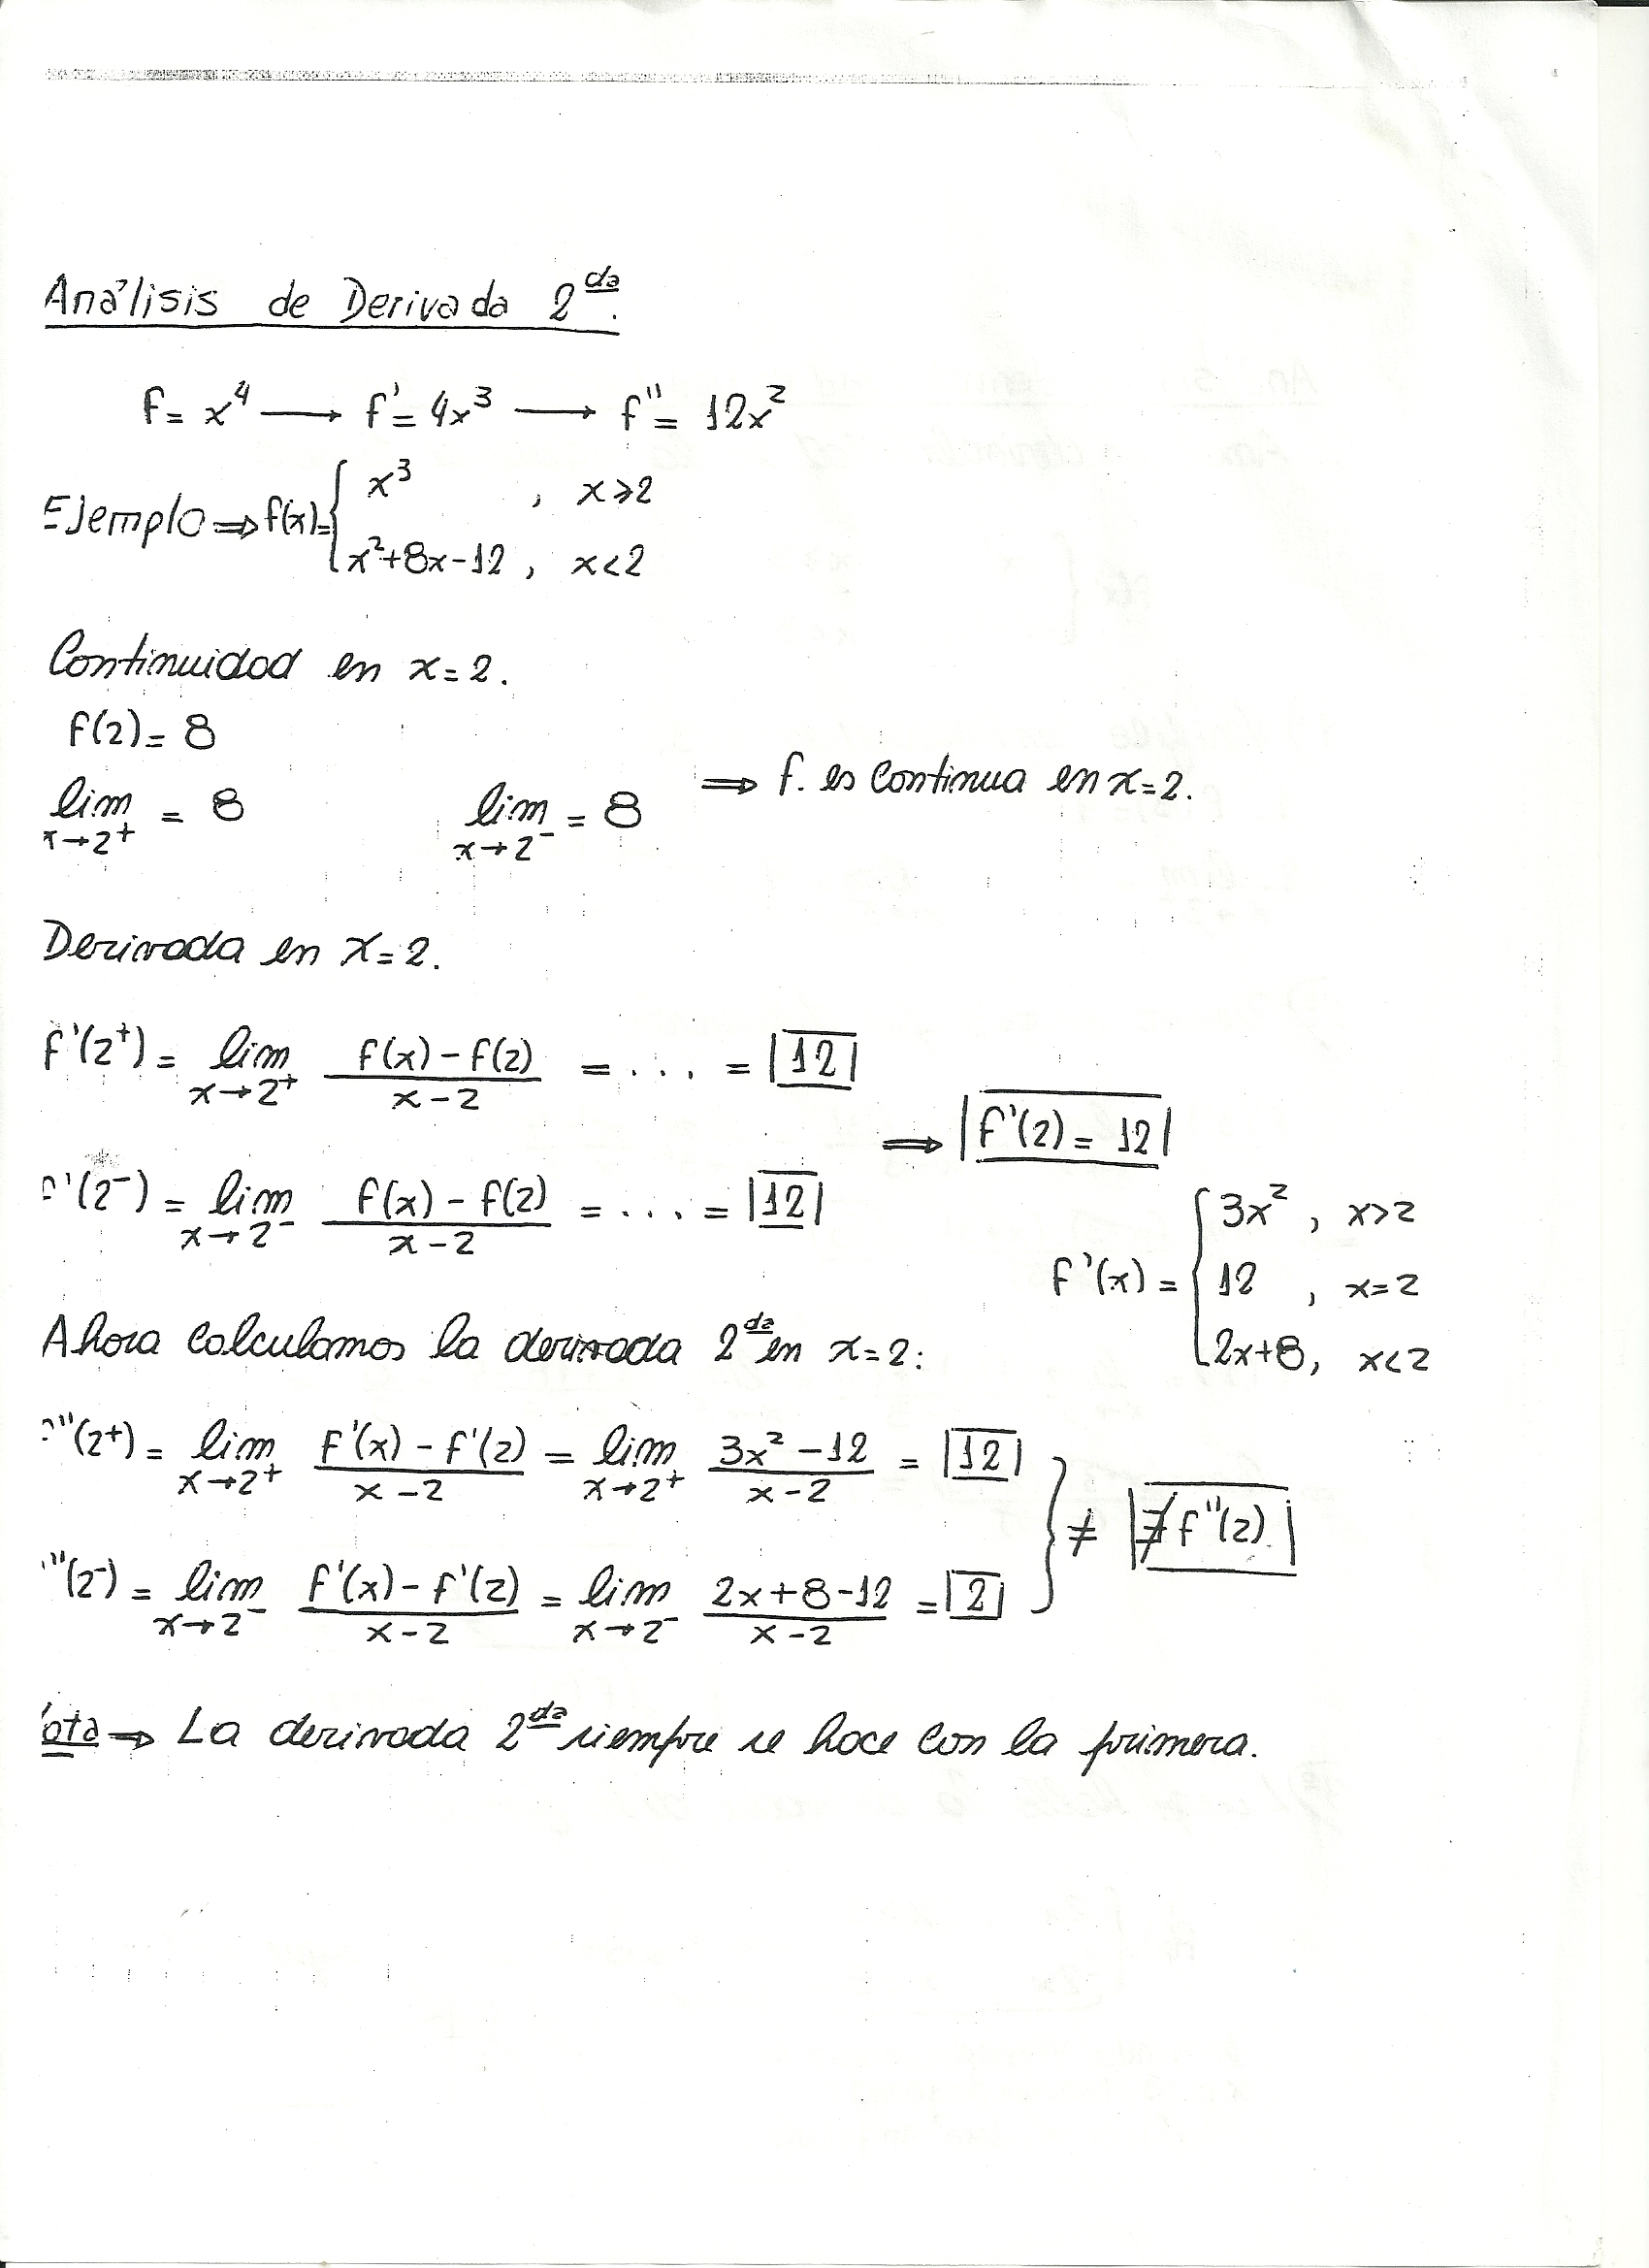 Análisis de Derivada 2da.
f = x⁴ ⟶ f' = 4x³ ⟶ f'' = 12x²
Ejemplo ⇒ f(x) = { x³ , x ⩾ 2
x² + 8x - 12 , x < 2
Continuidad en x = 2.
f(2) = 8
lim x→2⁺ = 8 lim x→2⁻ = 8 ⇒ f. es continua en x = 2.
Derivada en x = 2.
f'(2⁺) = lim x→2⁺ (f(x) - f(2))/(x - 2) = ... = |12|
⇒ |f'(2) = 12|
f'(2⁻) = lim x→2⁻ (f(x) - f(2))/(x - 2) = ... = |12|
f'(x) = { 3x² , x > 2
12 , x = 2
2x + 8, x < 2
Ahora calculamos la derivada 2da en x = 2:
''(2⁺) = lim x→2⁺ (f'(x) - f'(2))/(x - 2) = lim x→2⁺ (3x² - 12)/(x - 2) = |12|
} ≠ |∄ f''(2)|
''(2⁻) = lim x→2⁻ (f'(x) - f'(2))/(x - 2) = lim x→2⁻ (2x + 8 - 12)/(x - 2) = |2|
ota ⇒ La derivada 2da siempre se hace con la primera.